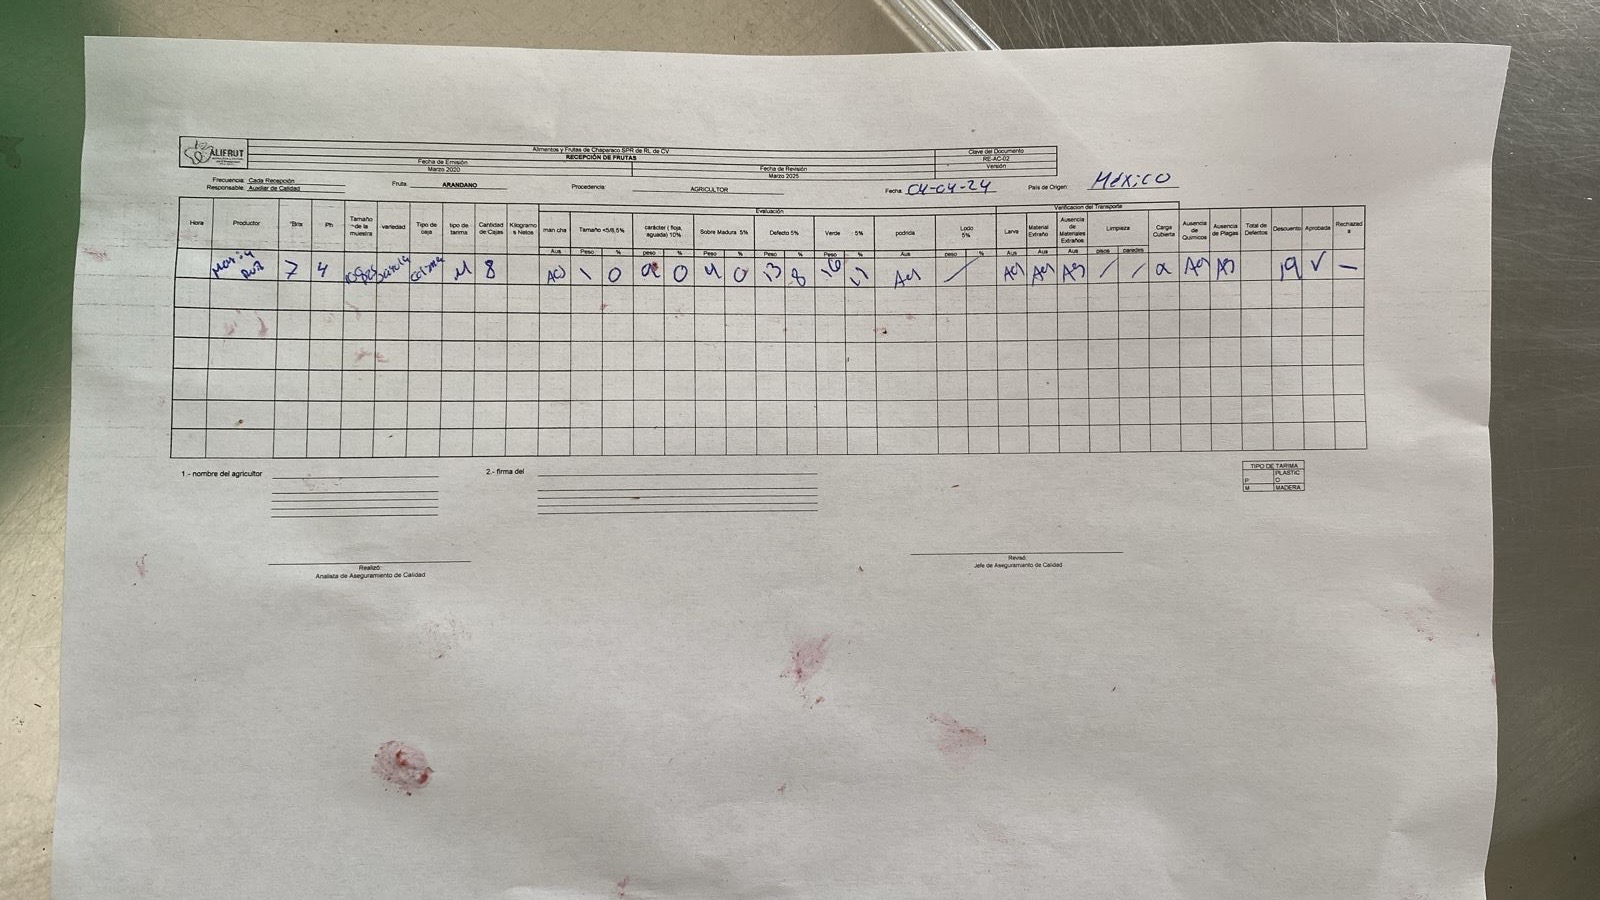 ALIFRUT
Alimentos y Frutas de Chaparaco SPR de RL de CV
RECEPCIÓN DE FRUTAS
Fecha de Emisión
Marzo 2020
Fecha de Revisión
Marzo 2025
Clave del Documento
RE-AC-02
Versión
Frecuencia: Cada Recepción
Responsable: Auxiliar de Calidad
Fruta: ARANDANO
Procedencia: AGRICULTOR
Fecha: 04-04-24
País de Origen: México
Evaluación
Verificacion del Transporte
Hora
Productor
°Brix
Ph
Tamaño de la muestra
variedad
Tipo de caja
tipo de tarima
Cantidad de Cajas
Kilogramos Netos
man cha
Tamaño <5/8,5%
carácter ( floja, aguada) 10%
Sobre Madura 5%
Defecto 5%
Verde 5%
podrida
Lodo 5%
Larva
Material Extraño
Ausencia de Materiales Extraños
Limpieza
Carga Cubierta
Ausencia de Quimicos
Ausencia de Plagas
Total de Defectos
Descuento
Aprobada
Rechazada
Aus Peso % peso % Peso % Peso % Peso % Aus peso % Aus Aus Aus pisos paredes
7 4 M 8 1 0 0 4 0 13 8 16
1.- nombre del agricultor
2.- firma del
TIPO DE TARIMA
P PLASTICO
M MADERA
Realizó:
Analista de Aseguramiento de Calidad
Revisó:
Jefe de Aseguramiento de Calidad